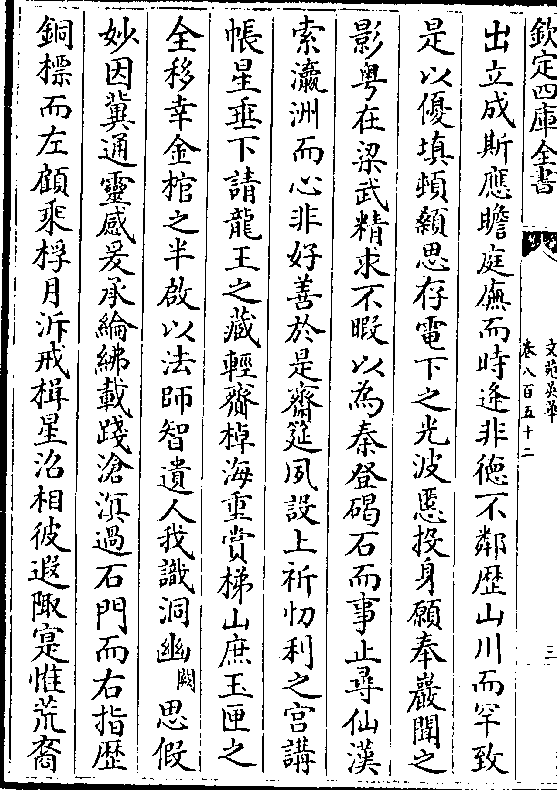 欽定四庫全書
文苑英華
卷八百五十二
三
出立成斯應瞻庭廡而時逢非徳不鄰歴山川而罕致
是以優填頓顙思存電下之光波慝投身願奉巖聞之
影粤在梁武精求不暇以為秦登碣石而事止尋仙漢
索瀛洲而心非好善於是齋筵夙設上祈忉利之宫講
帳星垂下請龍王之藏輕齎棹海重賞梯山庶玉匣之
全移幸金棺之半啟以法師智遺人我識洞幽闕思假
妙因冀通靈感爰承綸紼載踐滄溟過石門而右指歴
銅標而左顧乘桴月泝戒楫星沿相彼遐陬寔惟荒裔